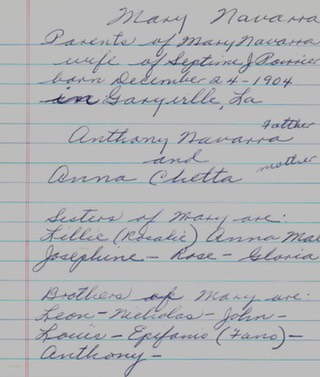 Mary Navarra
Parents of Mary Navarra
wife of Septime J Poirrier
born December 24-1904
in Garyville, La
Anthony Navarra father
and
Anna Chetta mother
Sisters of Mary are:
Lillie (Rosalie) Anna Mae
Josephine - Rose - Gloria
Brothers of Mary are:
Leon - Nicholas - John -
Louis - Epifanio (Fano) -
Anthony -